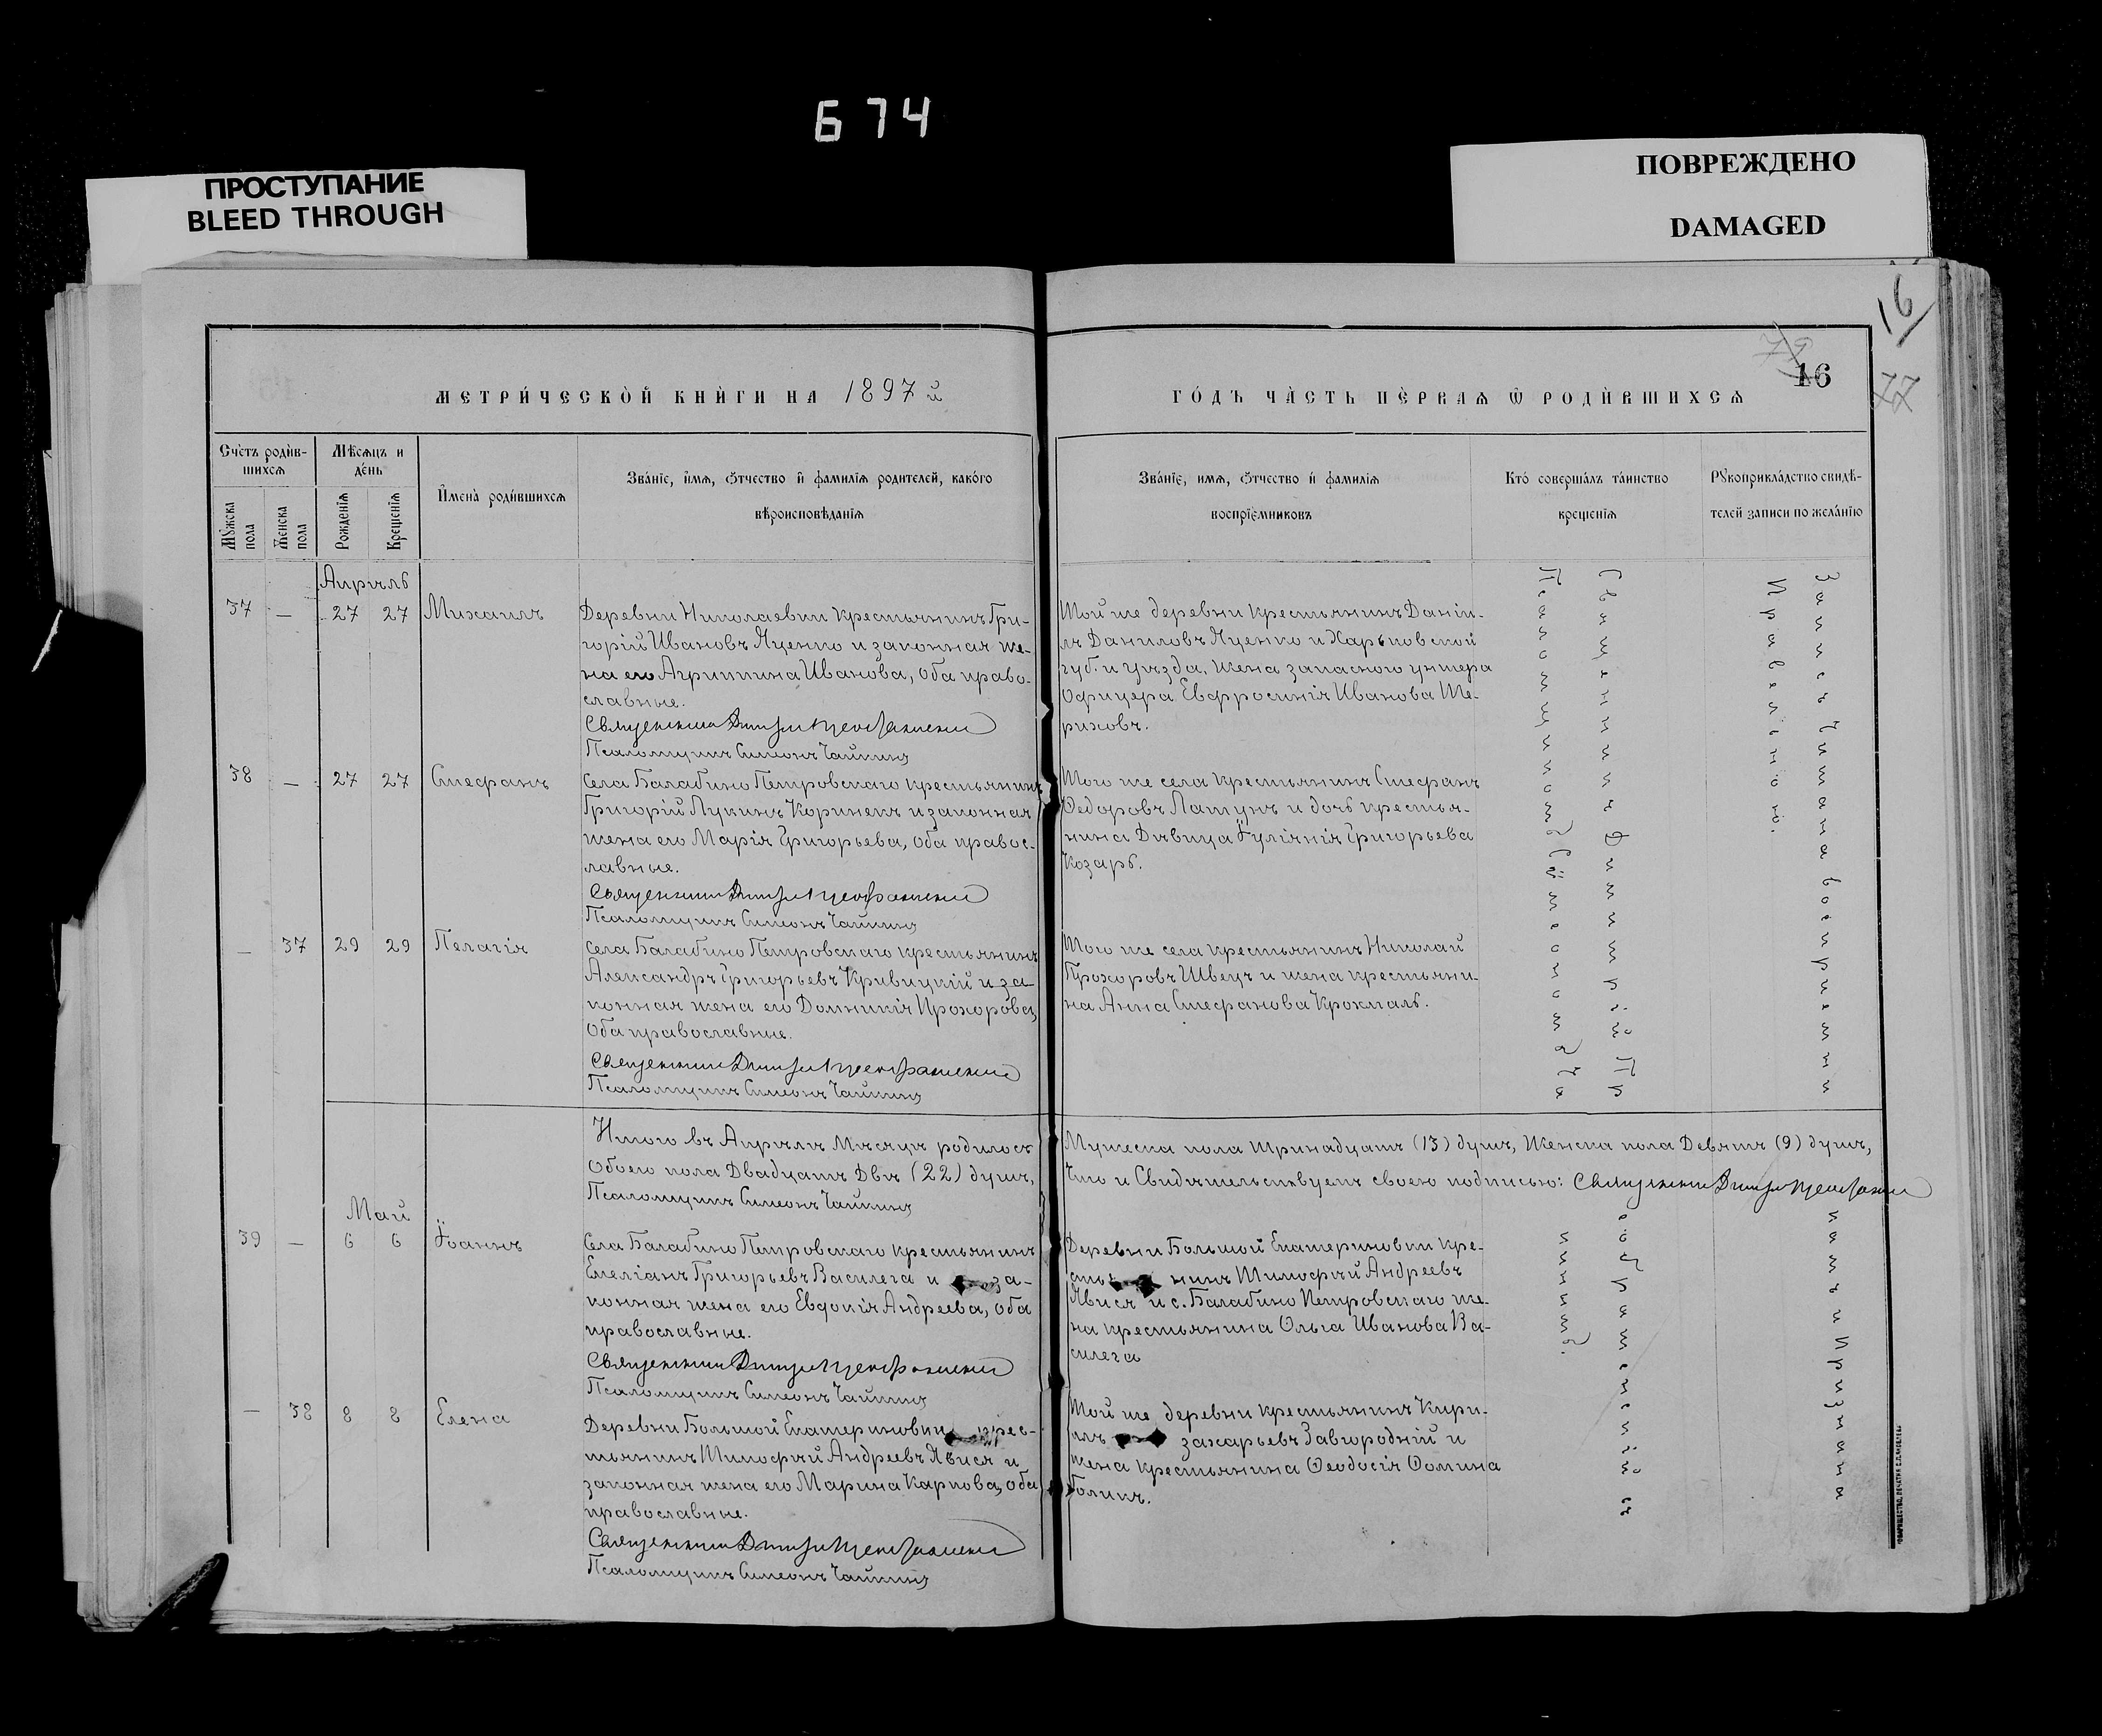 674
ПРОСТУПАНИЕ
BLEED THROUGH
ПОВРЕЖДЕНО
DAMAGED
16
79
16
77
МЕТРИ́ЧЕСКОЙ КНИ́ГИ НА 1897й
ГО́ДЪ ЧА́СТЬ ПЕ́РВАѦ Ѡ РОДИ́ВШИХСѦ
Сче́тъ роди́в-
шихсѧ
Мѣ́сѧцъ и
де́нь
Мꙋ́жска
пола
Же́нска
пола
Рожде́нїѧ
Креще́нїѧ
И҆мена̀ роди́вшихсѧ
Зва́нїе, и҆́мѧ, ѻ҆́тчество и҆ фами́лїѧ роди́телей, како́го
вѣроисповѣ́данїѧ
Зва́нїе, имѧ, ѻ҆́тчество и҆ фами́лїѧ
воспрїе́мниковъ
Кто́ соверша́лъ та́инство
креще́нїѧ
Рꙋкоприкла́дство свидѣ́-
телей записи по жела́нїю
Апрѣль
37 — 27 27 Михаилъ
Деревни Николаевки крестьянинъ Гри-
горій Ивановъ Яценко и законная же-
на его Агриппина Иванова, оба право-
славные.
Священникъ Димитрій Преображенскій
Псаломщикъ Симеонъ Чайкинъ
Той же деревни крестьянинъ Даніи-
лъ Даниловъ Яценко и Харьковской
губ. и уѣзда, жена запасного унтера
офицера Евфросинія Иванова Те-
риховъ.
38 — 27 27 Стефанъ
Села Балабино Петровскаго крестьянинъ
Григорій Лукинъ Коринетъ и законная
жена его Марія Григорьева, оба правос-
лавные.
Священникъ Димитрій Преображенскій
Псаломщикъ Симеонъ Чайкинъ
Того же села крестьянинъ Стефанъ
Ѳедоровъ Латунъ и дочь крестья-
нина Дѣвица Іуліанія Григорьева
Козарь.
— 37 29 29 Пелагія
Села Балабино Петровскаго крестьянинъ
Александръ Григорьевъ Кривицкій и за-
конная жена его Домникія Прохорова,
оба православные.
Священникъ Димитрій Преображенскій
Псаломщикъ Симеонъ Чайкинъ
Того же села крестьянинъ Николай
Прохоровъ Швецъ и жена крестьяни-
на Анна Стефанова Крохмаль.
Итого въ Апрѣлѣ Мѣсяцѣ родилось
Обоего пола Двадцать Двѣ (22) душъ,
Псаломщикъ Симеонъ Чайкинъ
Мужеска пола тринадцать (13) душъ, Женска пола Девять (9) душъ,
Что и Свидѣтельствуемъ своею подписью: Священникъ Димитрій Преображенскій
Май
39 — 6 6 Іоаннъ
Села Балабино Петровскаго крестьянинъ
Емеліанъ Григорьевъ Василега и за-
конная жена его Евдокія Андреева, оба
православные.
Священникъ Димитрій Преображенскій
Псаломщикъ Симеонъ Чайкинъ
Деревни Большой Екатериновки кре-
стья нинъ Тимофѣй Андреевъ
Явися и с. Балабино Петровскаго же-
на крестьянина Ольга Иванова Ва-
силега
— 38 8 8 Елена
Деревни Большой Екатериновки крес-
тьянинъ Тимофѣй Андреевъ Явися и
законная жена его Марина Карпова, оба
православные.
Священникъ Димитрій Преображенскій
Псаломщикъ Симеонъ Чайкинъ
Той же деревни крестьянинъ Кири-
лъ захарьевъ Завгородній и
жена крестьянина Ѳеодосія Ѳомина
Голикъ.
Священникъ Димитрій Преображенскій и
Псаломщикъ Симеонъ Чайкинъ.
Запись чинана воспріемники и признана
Правильной.